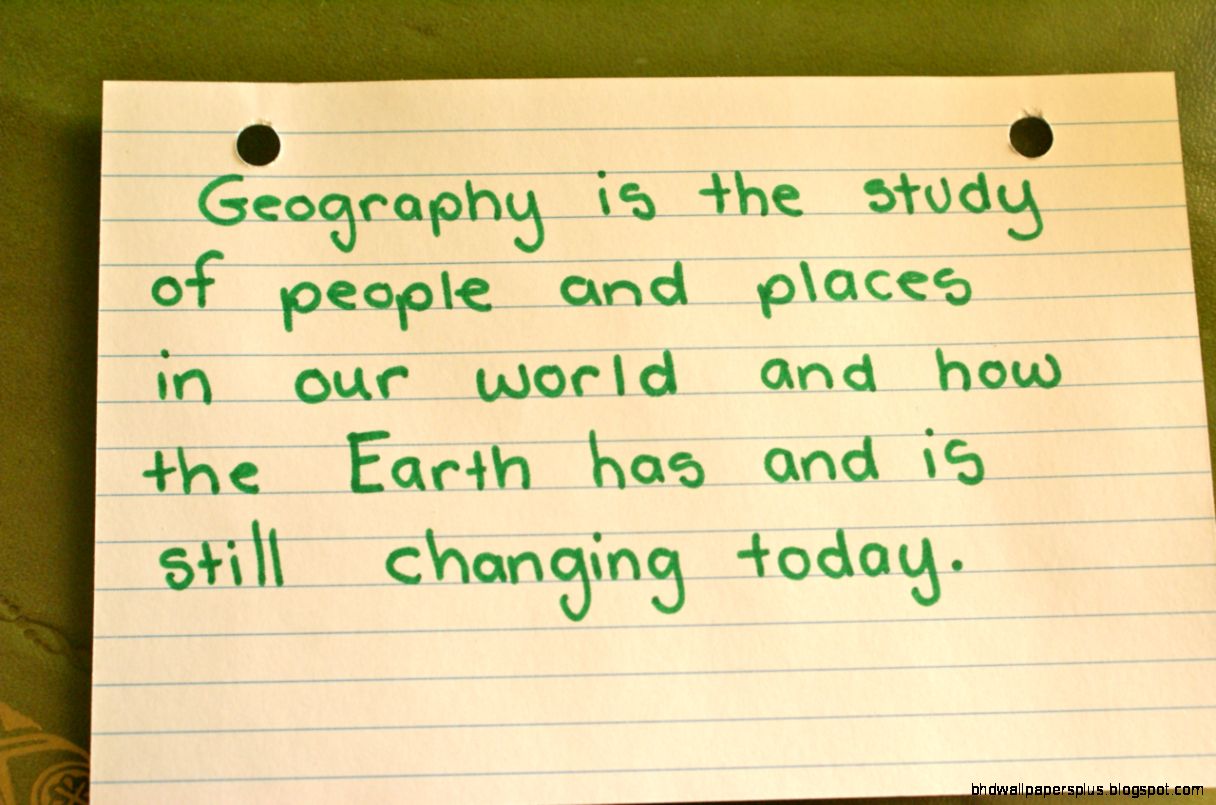 Geography is the study
of people and places
in our world and how
the Earth has and is
still changing today.
bhdwallpapersplus.blogspot.com